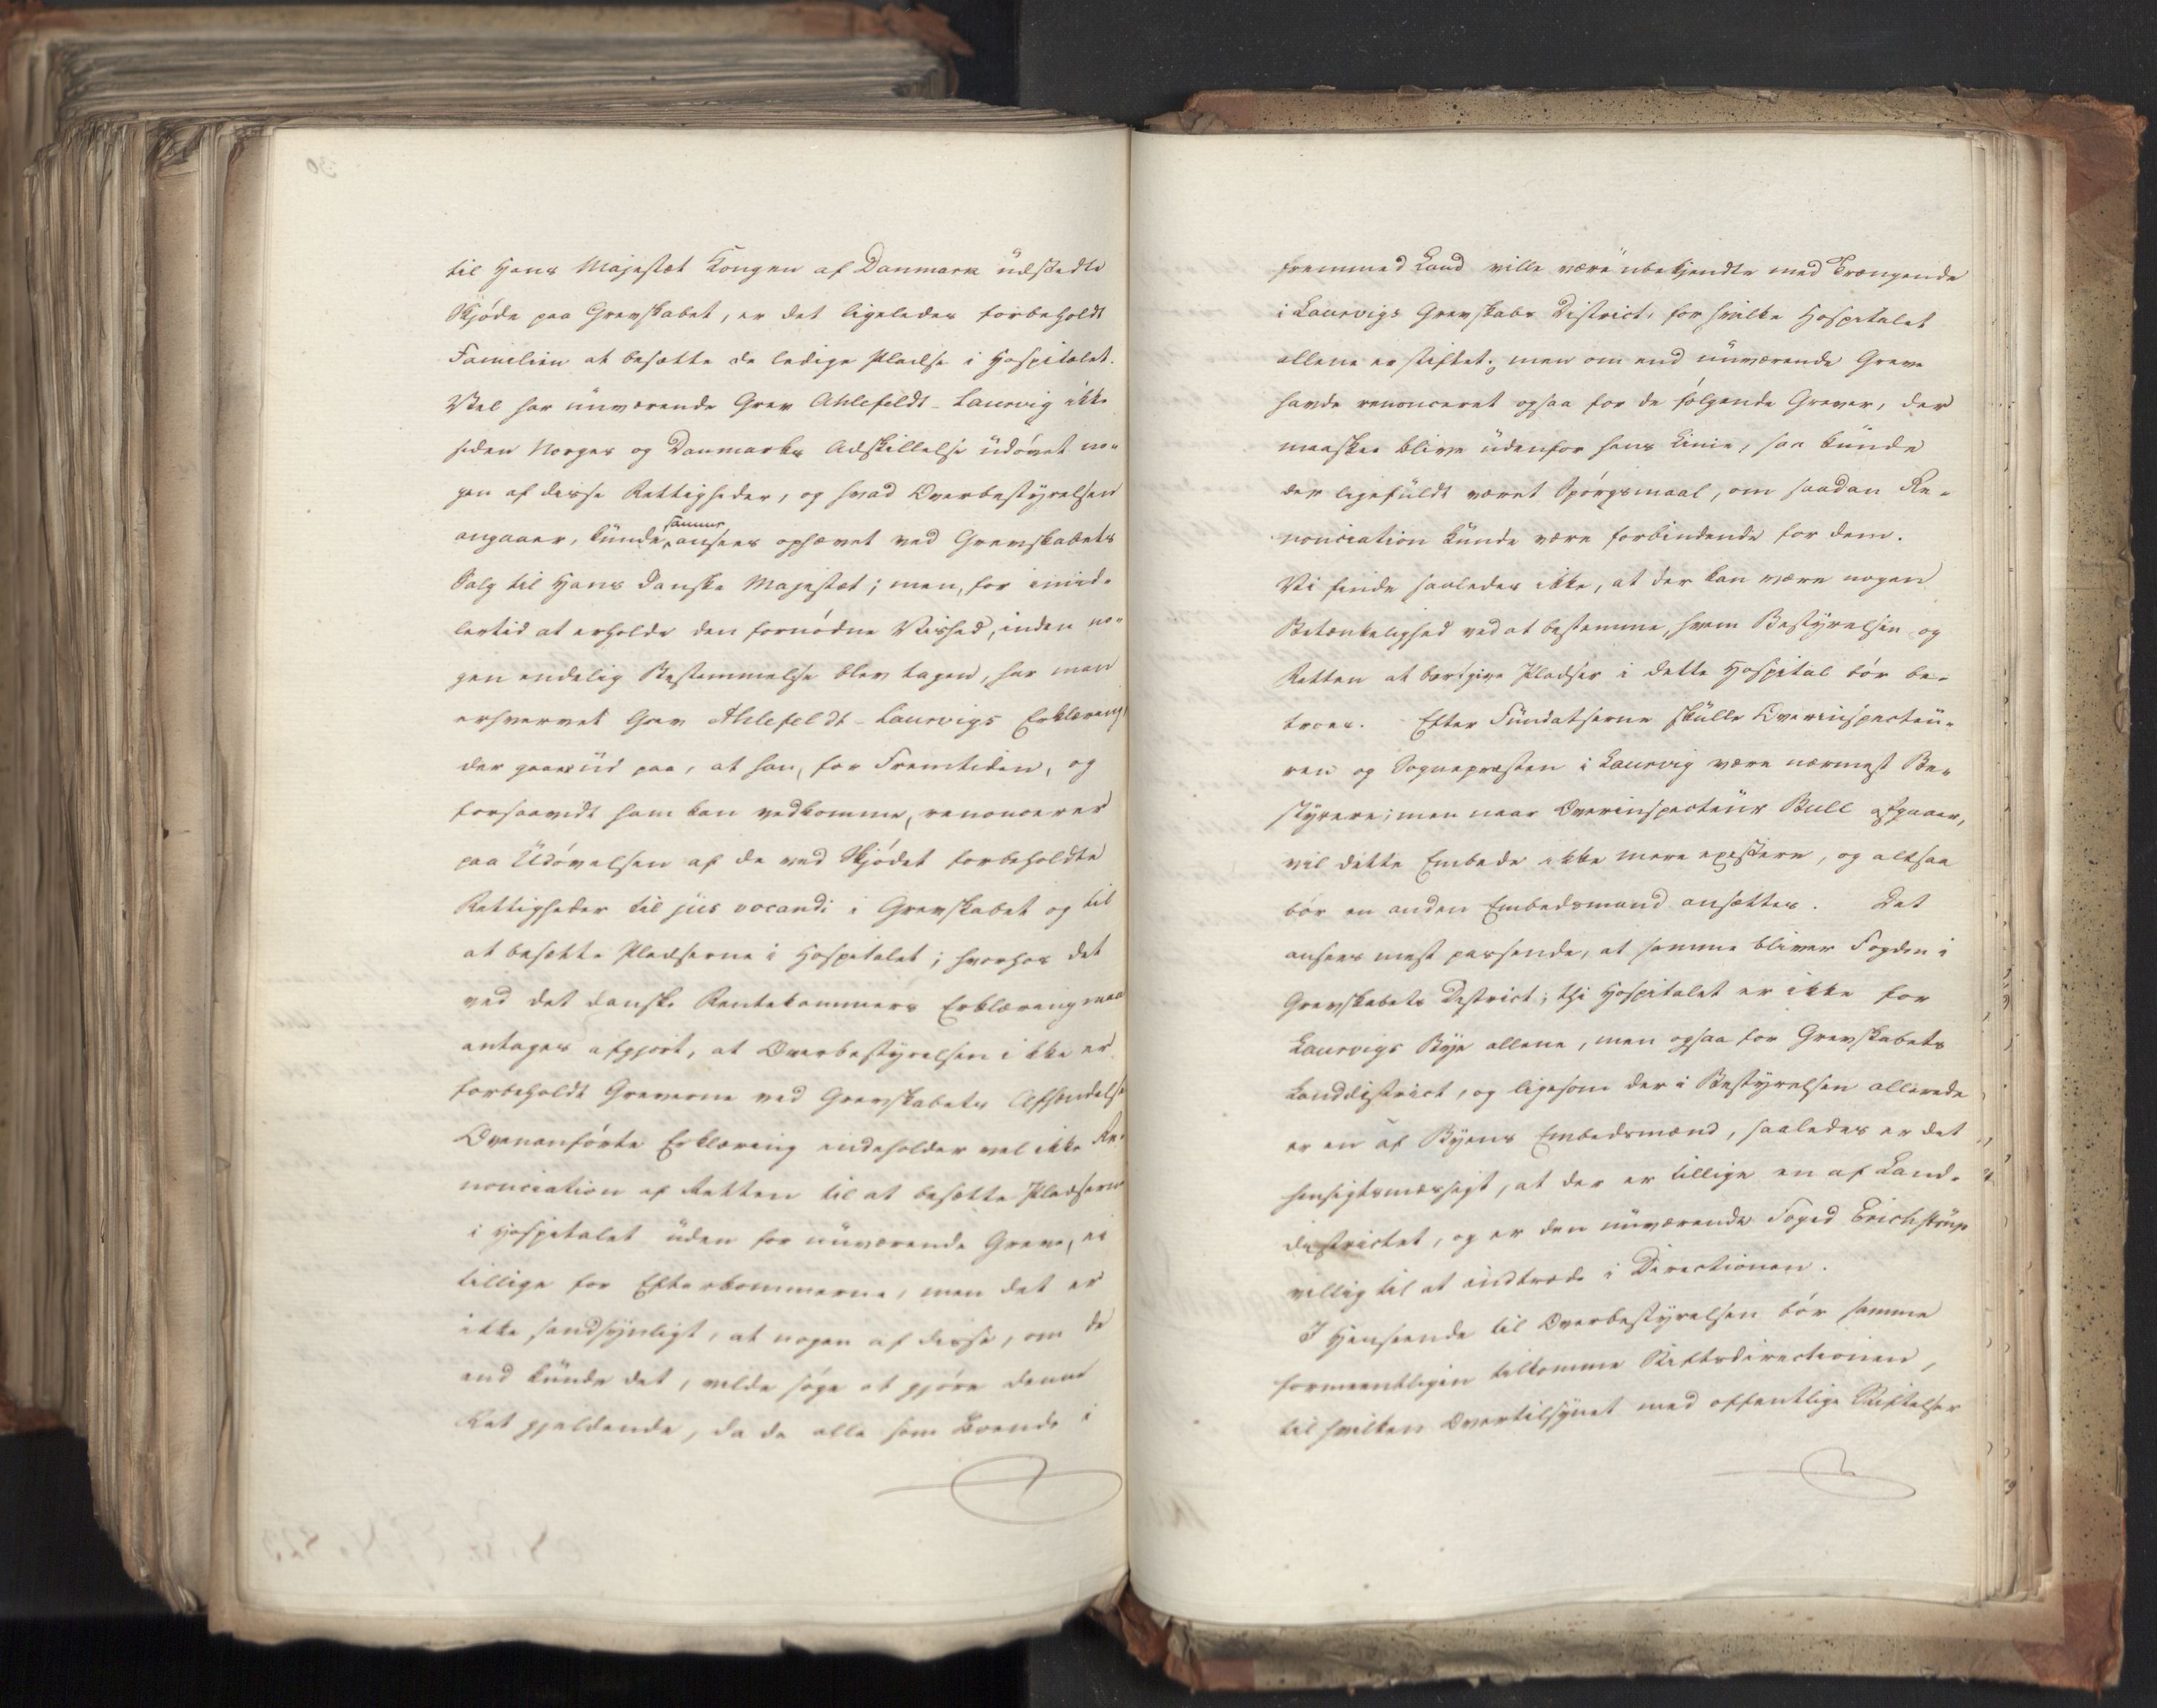 til Hans Majestæt Kongen af Danmark udstedte
Skjöde paa Grevskabet, er det ligeledes forbeholdt
Familien at besætte de ledige Pladse i Hospitalet.
Vel har nuværende Grev Ahlefeldt-Laurvig ikke
siden Norges og Danmarks Adskillelse udövet no-
gen af disse Rettigheder, og hvad Overbestyrelsen
angaaer, kunde samme ansees ophævet ved Grevskabets
Salg til Hans danske Majestæt; men, for imid-
lertid at erholde den fornödne Vished, inden no-
gen endelig Bestemmelse blev tagen, har man
erhvervet Grev Ahlefeldt-Laurvigs Erklæring,
der gaaer ud paa, at han, for Fremtiden, og
forsaavidt ham kan vedkomme, renoncerer
paa Udövelsen af de ved Skjödet forbeholdte
Rettigheder til jus vocandi i Grevskabet og til
at besætte Pladserne i Hospitalet; hvorhos det
ved det danske Rentekammers Erklæring maa
antages afgjort, at Overbestyrelsen ikke er
forbeholdt Greverne ved Grevskabets Afhændelse
Ovenanförte Erklæring indeholder vel ikke Re-
nonciation af Retten til at besætte Pladserne
i Hospitalet uden for nuværende Greve, ei
tillige for Efterkommerne, men det er
ikke sandsynligt, at nogen af disse, om de
end kunde det, vilde söge at gjöre denne
Ret gjældende, da de alle som boende i
fremmed Land ville være ubekjendte med Trængende
i Laurvigs Grevskabs District, for hvilke Hospitalet
allene er stiftet; men om end nuværende Greve
havde renonceret ogsaa for de fölgende Grever, der
maaskee blive udenfor hans Linie, saa kunde
der ligefuldt været Spörgsmaal, om saadan Re-
nonciation kunde være forbindende for dem.
Vi finde saaledes ikke, at der kan være nogen
Betænkelighed ved at bestemme, hvem Bestyrelsen og
Retten at bortgive Pladser i dette Hospital bör be-
troes. Efter Fundatserne skulle Overinspecteu-
ren og Sognepræsten i Laurvig være nærmest Be-
styrere; men naar Overinspecteur Bull afgaaer,
vil dette Embede ikke mere existere, og altsaa
bör en anden Embedsmand ansættes. Det
ansees mest passende, at samme bliver Fogden i
Grevskabets District; thi Hospitalet er ikke for
Laurvigs Bye allene, men ogsaa for Grevskabets
Landdistrict, og ligesom der i Bestyrelsen allerede
er en af Byens Embedsmænd, saaledes er det
hensigtsmæssigt, at der er tillige en af Land-
districtet, og er den nuværende Foged Erichstrup
villig til at indtræde i Directionen.
I Henseende til Overbestyrelsen bör samme
formeentligen tilkomme Stiftsdirectionen,
til hvilken Overtilsynet med offentlige Stiftelser